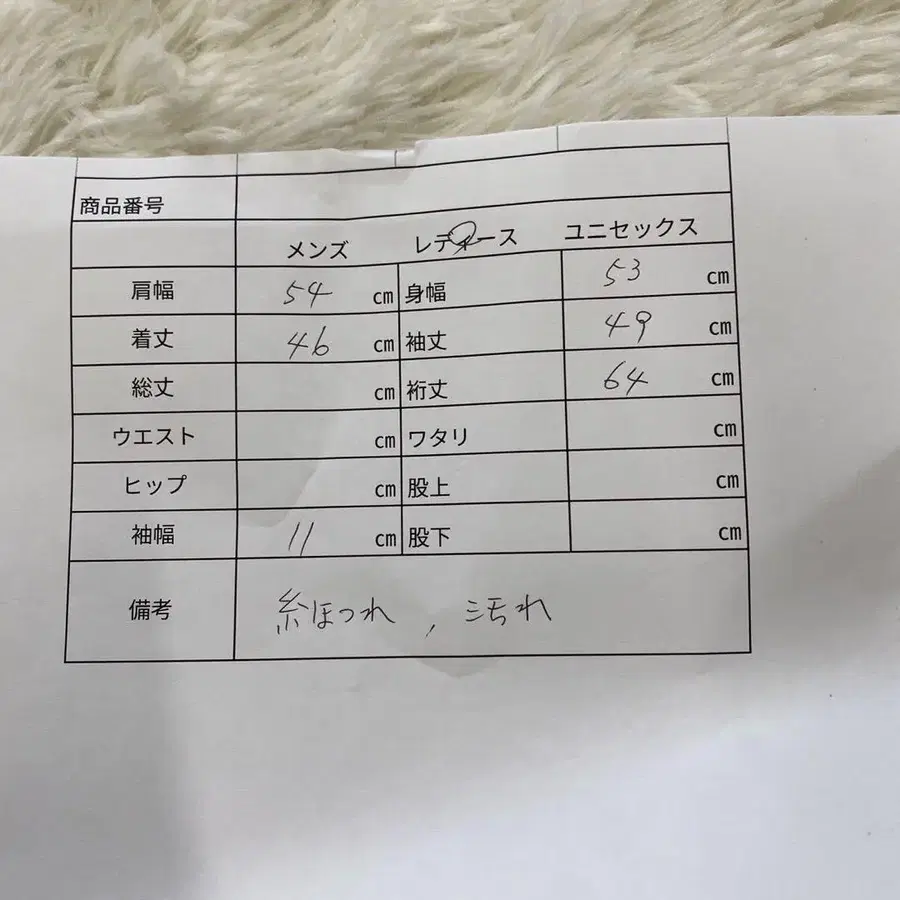 商品番号
メンズ レディース ユニセックス
肩幅 54 cm 身幅 53 cm
着丈 46 cm 袖丈 49 cm
総丈 cm 裄丈 64 cm
ウエスト cm ワタリ cm
ヒップ cm 股上 cm
袖幅 11 cm 股下 cm
備考 糸ほつれ , 汚れ